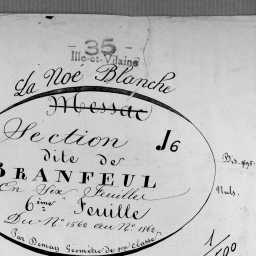 - 35 -
Ille-et-Vilaine
La Noé Blanche
Messac
Section J6
dite de
BRANFEUL
En Six Feuilles
6ème Feuille
Du N° 1560 au N° 1862
Par Demay Géomètre de 1ère classe